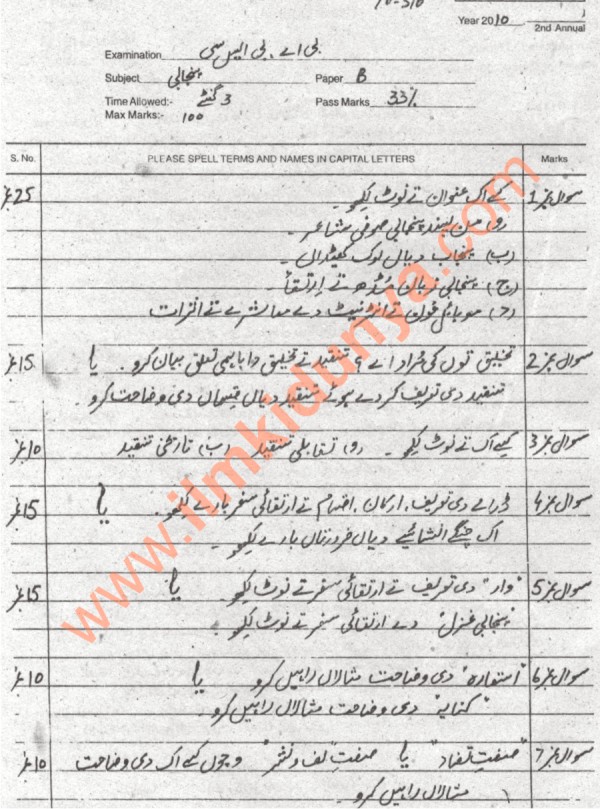 10-310
Year 2010
2nd Annual
Examination بی اے، بی ایس سی
Subject پنجابی Paper B
Time Allowed:- 3 گھنٹے Pass Marks 33%
Max Marks:- 100
S. No. PLEASE SPELL TERMS AND NAMES IN CAPITAL LETTERS Marks
سوال نمبر 1 کسے اک عنوان تے نوٹ لکھو۔ 25 نمبر
(ا) من پسند پنجابی صوفی شاعر۔
(ب) پنجاب دیاں لوک کھیڈاں۔
(ج) پنجابی زبان مُڈھ تے اِرتقأ۔
(د) موبائل فون تے انٹرنیٹ دے معاشرے تے اثرات
سوال نمبر 2 تخلیق توں کی مُراد اے؟ تنقید تے تخلیق دا باہمی تعلق بیان کرو۔ یا 15 نمبر
تنقید دی تعریف کردے ہوئے تنقید دیاں قِسماں دی وضاحت کرو۔
سوال نمبر 3 کسے اک تے نوٹ لکھو۔ (ا) تقابلی تنقید (ب) تاریخی تنقید 10 نمبر
سوال نمبر 4 ڈرامے دی تعریف، ارکان، اقسام تے ارتقائی سفر بارے لکھو۔ یا 15 نمبر
اک چنگے انشائیے دیاں ضرورتاں بارے لکھو۔
سوال نمبر 5 "وار" دی تعریف تے ارتقائی سفر تے نوٹ لکھو۔ یا 15 نمبر
"پنجابی غزل" دے ارتقائی سفر تے نوٹ لکھو۔
سوال نمبر 6 "استعارہ" دی وضاحت مثالاں راہیں کرو یا 10 نمبر
"کنایہ" دی وضاحت مثالاں راہیں کرو۔
سوال نمبر 7 "صنعتِ تضاد" یا "صنعتِ لف و نشر" وچوں کسے اک دی وضاحت 10 نمبر
مثالاں راہیں کرو۔
www.ilmkidunya.com